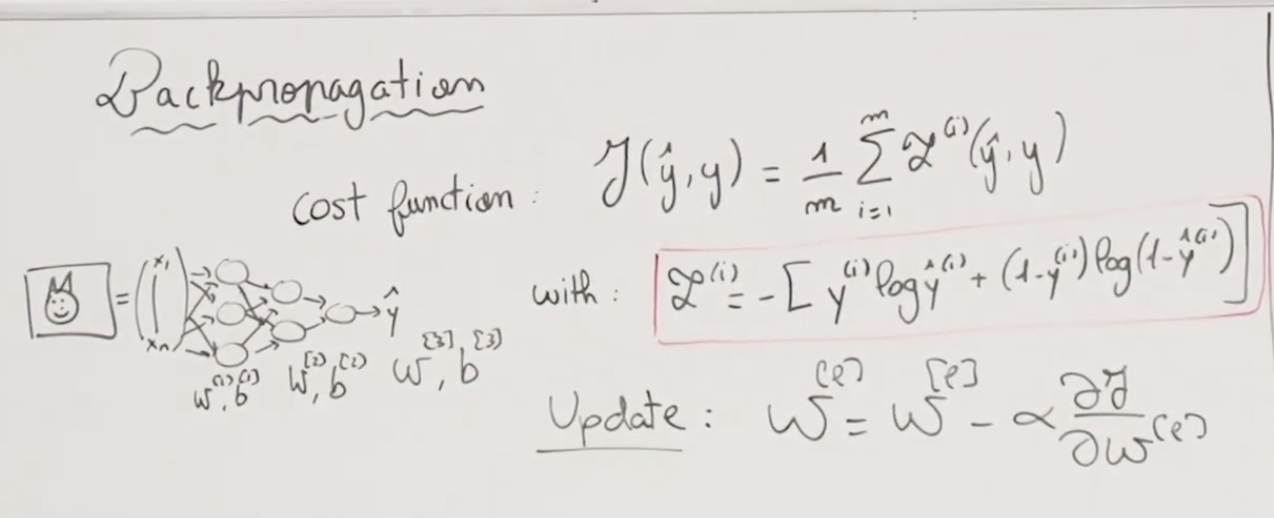 Backpropagation
cost function : J(ŷ,y) = 1/m ∑_{i=1}^{m} ℒ^{(i)}(ŷ,y)
with : ℒ^{(i)} = -[y^{(i)} log ŷ^{(i)} + (1-y^{(i)}) log(1-ŷ^{(i)})]
= (x₁ xₙ) → ŷ
w^{[1]}, b^{[1]} w^{[2]}, b^{[2]} w^{[3]}, b^{[3]}
Update : w^{[l]} = w^{[l]} - α ∂J/∂w^{[l]}